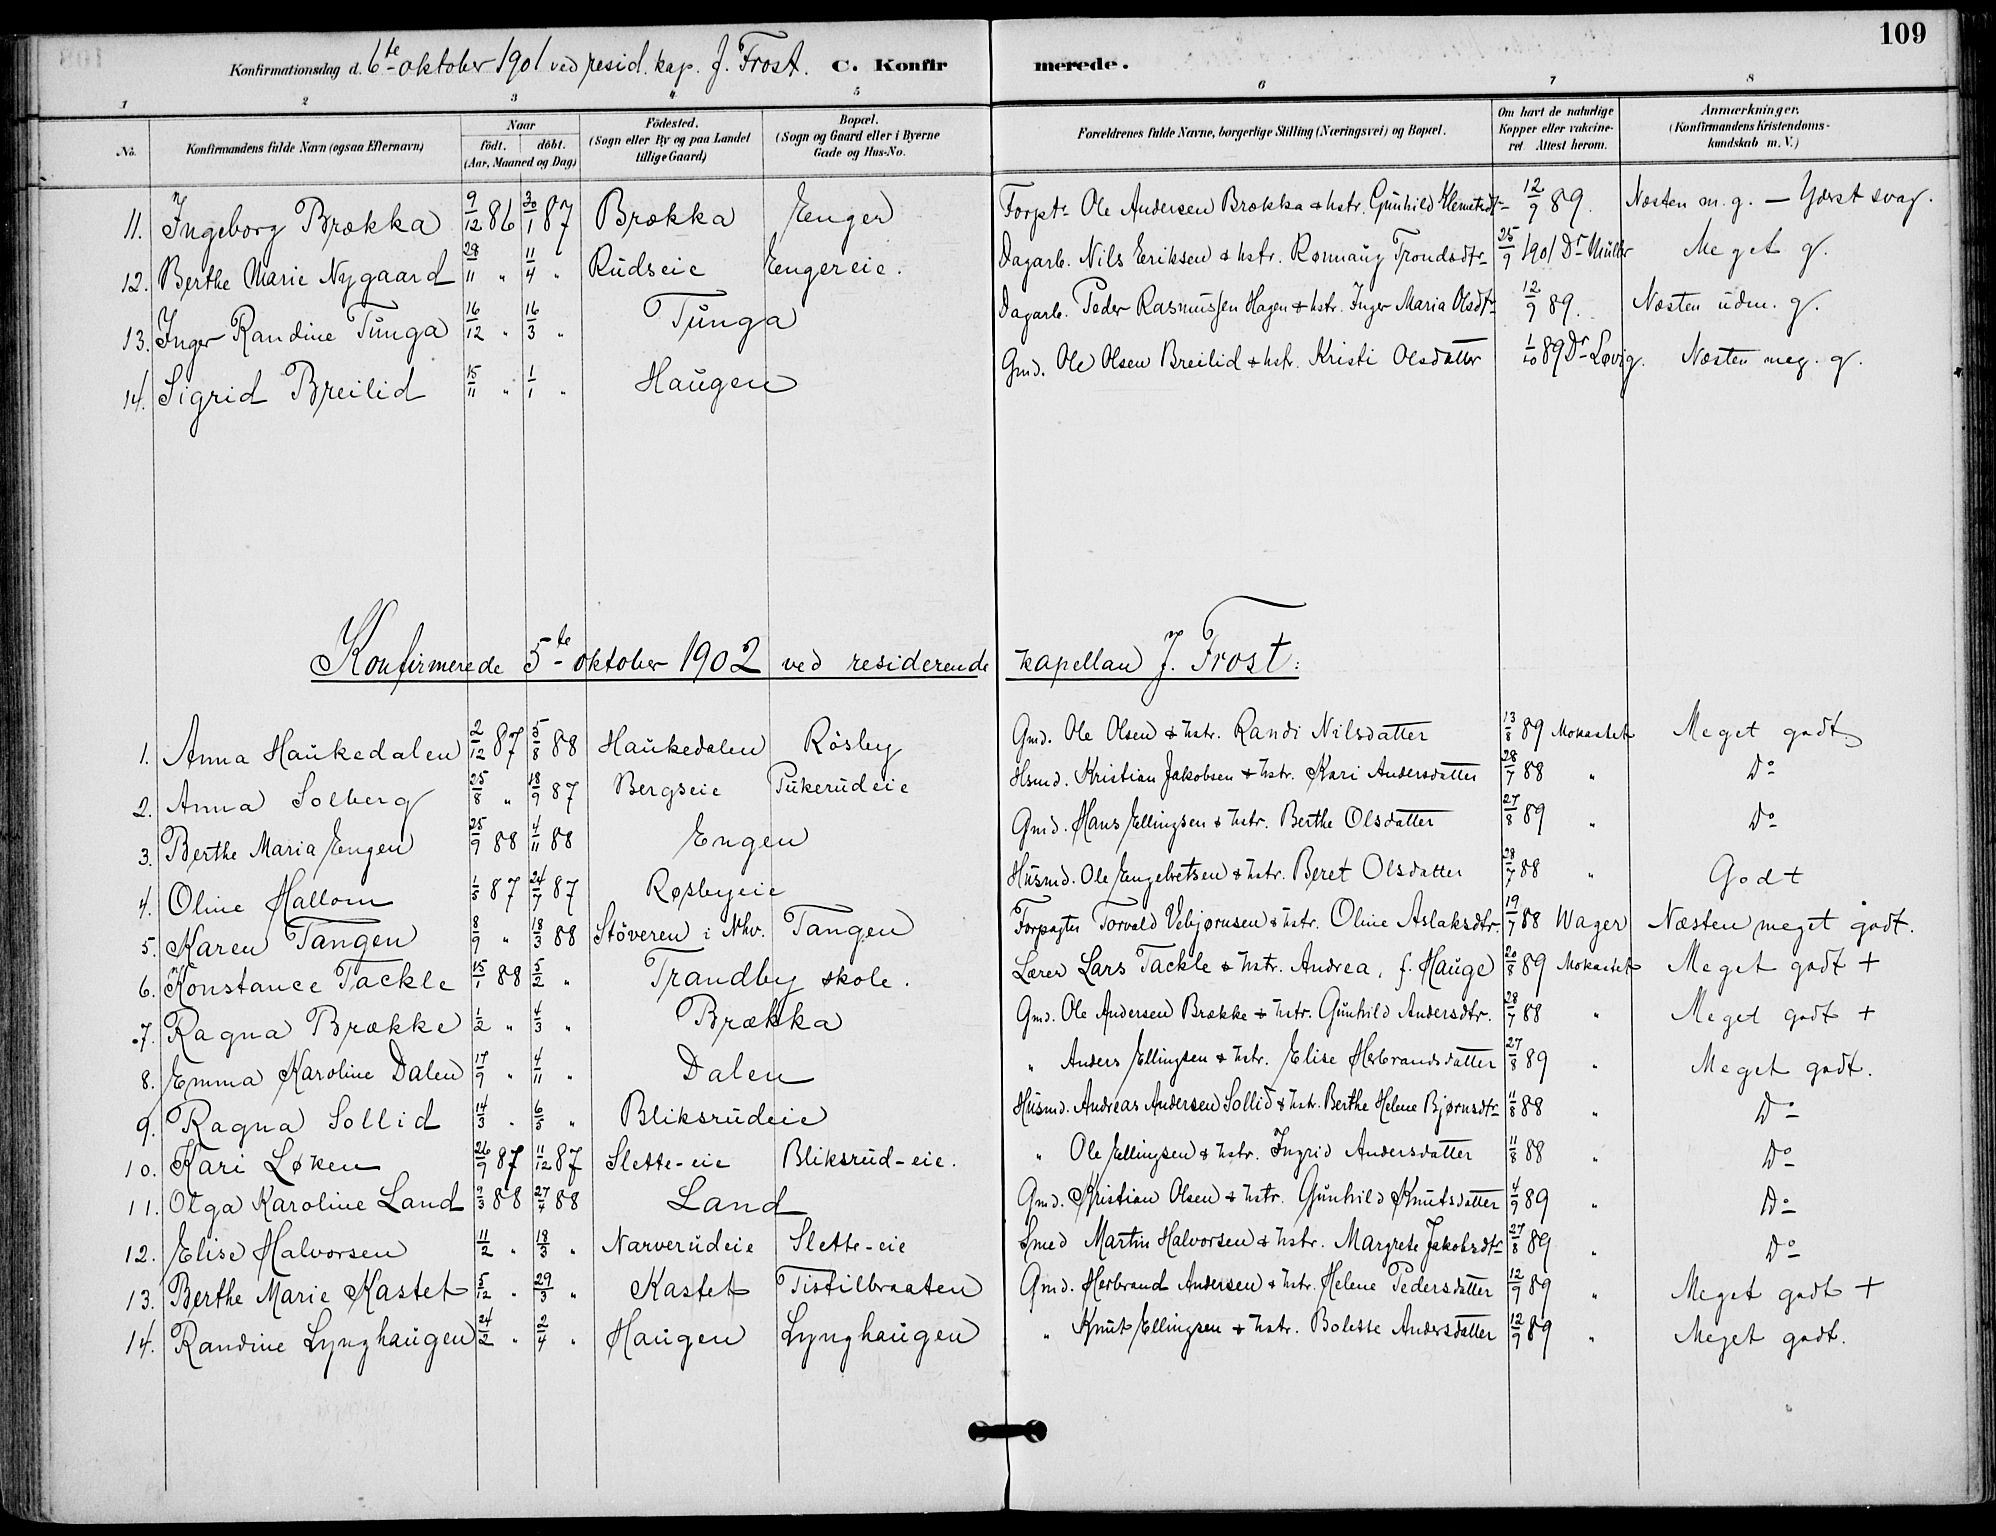 109
Konfirmationsdag d. 6te oktober 1901 ved resid. kap. J. Frost. C. Konfirmerede.
1 2 3 4 5 6 7 8
No. Konfirmandens fulde Navn (ogsaa Efternavn) Naar født. døbt. (Aar, Maaned og Dag) Fødested. (Sogn eller By og paa Landet tillige Gaard) Bopæl. (Sogn og Gaard eller i Byerne Gade og Hus-No. Forældrenes fulde Navne, borgerlige Stilling (Næringsvei) og Bopæl. Om havt de naturlige Kopper eller vakcineret. Attest herom. Anmærkninger. (Konfirmandens Kristendomskundskab m. V.)
11. Ingeborg Brækka 9/12 86 30/1 87 Brækka Enger Forpt. Ole Andersen Brækka & hstr. Gunhild 12/9 89. Næsten m. g. — Yderst svag.
12. Berthe Marie Nygaard 28/11 " 11/4 " Rudseie Engereie. Dagarb. Nils Eriksen & hstr. Rønnaug Trondsdtr 25/9 1901 Dr Müller Meget g.
13. Inger Randine Tunga 16/12 " 16/3 " Tunga Dagarb. Peder Rasmussen Hagen & hstr. Inger Maria Olsdtr 12/9 89. Næsten udm. g.
14. Sigrid Breilid 15/11 " 1/1 " Haugen Gmd. Ole Olsen Breilid & hstr. Kristi Olsdatter 1/10 89 Dr Løvig. Næsten meg. g.
Konfirmerede 5te oktober 1902 ved residerende kapellan J. Frost:
1. Anna Haukedalen 2/12 87 5/8 88 Haukedalen Rösby Gmd. Ole Olsen & hstr. Randi Nilsdatter 13/8 89 Mokastet Meget godt
2. Anna Solberg 25/8 " 18/9 87 Bergseie Pukerudeie Hsmd. Kristian Jakobsen & hstr. Kari Andersdatter 28/7 88 " Do
3. Berthe Maria Engen 25/9 88 4/11 88 Engen Gmd. Hans Ellingsen & hstr. Berthe Olsdatter 27/8 89 " Do
4. Oline Hallom 1/5 87 24/7 87 Røsbyeie Husmd. Ole Engebretsen & hstr. Beret Olsdatter 28/7 88 " Godt
5. Karen Tangen 8/9 " 18/3 88 Stöveren i Nhv. Tangen Forpagter Torvald Vebjørnsen & hstr. Oline Aslaksdtr. 19/7 88 Wager Næsten meget godt.
6. Konstance Tackle 15/1 88 5/2 " Trandby skole. Lærer Lars Tackle & hstr. Andrea, f. Hauge 20/8 89 Mokastet Meget godt +
7. Ragna Brække 1/2 " 4/3 " Brækka Gmd. Ole Andersen Brække & hstr. Gunhild Andersdtr. 28/7 88 " Meget godt +
8. Emma Karoline Dalen 17/9 " 4/11 " Dalen " Anders Ellingsen & hstr. Elise Herbrandsdatter 27/8 89 " Meget godt.
9. Ragna Sollid 14/3 " 6/5 " Bliksrudeie Husmd. Andreas Andersen Sollid & hstr. Berthe Helene Bjørnsdtr 11/8 88 " Do
10. Kari Løken 26/9 87 11/12 87 Slette-eie Bliksrud-eie. " Ole Ellingsen & hstr. Ingrid Andersdatter 11/8 88 " Do
11. Olga Karoline Land 9/3 88 27/4 88 Land Gmd. Kristian Olsen & hstr. Gunhild Knutsdatter 4/9 89 " Do
12. Elise Halvorsen 11/2 " 18/3 " Narverudeie Slette-eie Smed Martin Halvorsen & hstr. Margrete Jakobsdtr 27/8 89 " Do
13. Berthe Marie Kastet 5/12 " 29/3 " Kastet Tistilbraaten Gmd. Herbrand Andersen & hstr. Helene Pedersdatter 12/9 89 " Meget godt +
14. Randine Lynghaugen 24/2 " 2/4 " Haugen Lynghaugen " Knut Ellingsen & hstr. Bolette Andersdatter 12/9 89 " Meget godt.